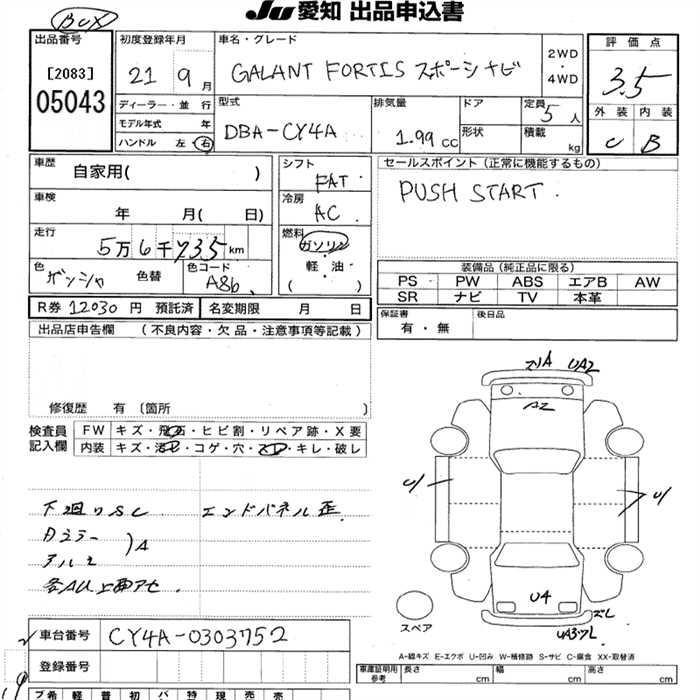 JU 愛知 出品申込書
BOX
出品番号
[2083]
05043
初度登録年月
21 9月
ディーラー・並 行
モデル年式 年
ハンドル 左・右
車名・グレード
GALANT FORTIS スポーツナビ
2WD
・
4WD
型式
DBA-CY4A
排気量
1.99 cc
ドア
形状
定員 5人
積載 kg
評価点
3.5
外装 内装
C B
車歴
自家用( )
車検
年 月( 日)
走行
5万6千735km
色
ガンシャ 色替
色コード
A86
シフト
FAT
冷房
AC
燃料
ガソリン
・
軽油
( )
セールスポイント (正常に機能するもの)
PUSH START
装備品 (純正品に限る)
PS PW ABS エアB AW
SR ナビ TV 本革
R券 12030 円 預託済 名変期限 月 日
保証書
有・無
後日品
出品店申告欄 (不良内容・欠品・注意事項等記載)
修復歴 有 〔箇所 〕
検査員
記入欄
FW キズ・飛石・ヒビ割・リペア跡・X要
内装 キズ・汚レ・コゲ・穴・スレ・キレ・破レ
下廻りSC エンドパネル歪
アルミ
A
A2
UA2
U1
U1
U4
スペア
車台番号 CY4A-0303752
登録番号
A-線キズ E-エクボ U-凹み W-補修跡 S-サビ C-腐食 XX-取替済
車庫証明用
参考
長さ cm 幅 cm 高さ cm
ブ 希 軽 普 初 バ 特 現 売 売